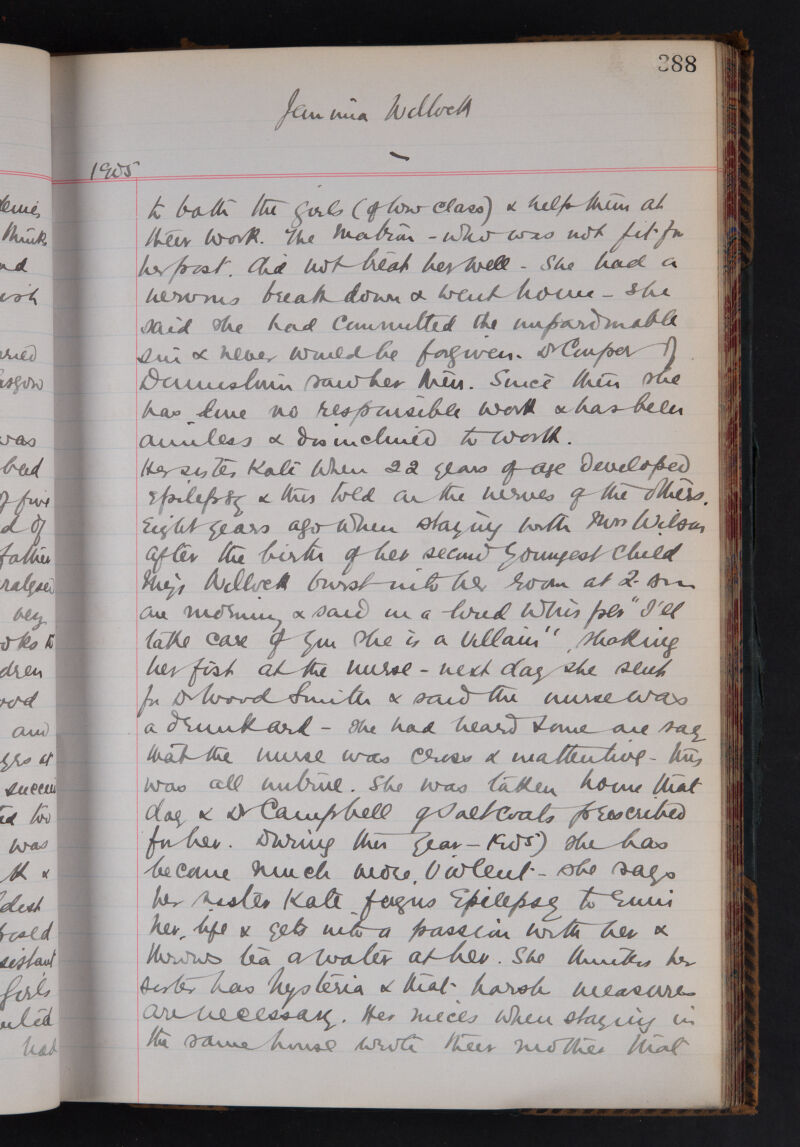 388
Jemima Wellock
1905
to bath the girls (of low class) & help them at
their work. The Matron - who was not fit for
her post. did not treat her well - She had a
nervous break down & went home - she
said she had committed the unpardonable
sin & never would be forgiven. Dr Couper of
saw her then. Since then she
has done no responsible work & has been
aimless & disinclined to work.
Her sister Kate when 22 years of age developed
Epilepsy & this told on the nerves of the others.
Eight years ago when staying with Mrs Wilson
after the birth of her second youngest child
Miss Wellock burst into her room at 2 am
one morning & said in a loud whisper "I'll
take care of you she is a villain", shaking
her fist at the nurse - next day she sent
for Dr Wood Smith & said the nurse was
a drunkard - she had heard some one say
that the nurse was cross & inattentive - this
was all untrue. She was taken home that
day & Dr Campbell of Saltcoats prescribed
for her. During this year - 1905) she has
become much more violent - she says
her sister Kate feigns Epilepsy to
her life & gets into a passion with her &
throws tea or water at her. She thinks her
sister has hysteria & that harsh measures
are necessary. Her nieces when staying in
the same house wrote their mother that
think
nd
was
of five
d of
father
very
oks to
dren
and
was
had